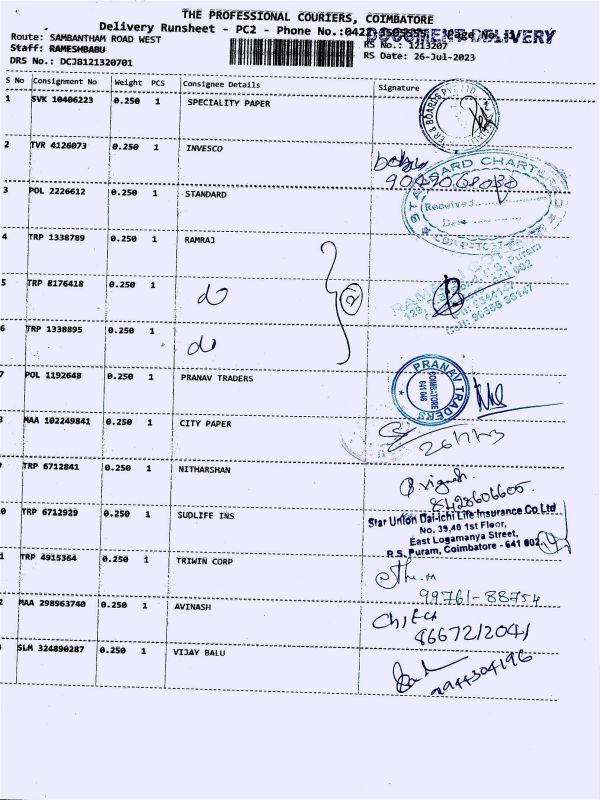 THE PROFESSIONAL COURIERS, COIMBATORE
Delivery Runsheet - PC2 - Phone No.:0422 Page No. 1
DOCUMENT DELIVERY
Route: SAMBANTHAM ROAD WEST
RS No.: 1213207
Staff: RAMESHBABU
RS Date: 26-Jul-2023
DRS No.: DCJB121320701
S No Consignment No Weight PCS Consignee Details Signature
1 SVK 10406223 0.250 1 SPECIALITY PAPER
& BOARDS PVT LTD
2 TVR 4126073 0.250 1 INVESCO
STANDARD CHARTERED
3 POL 2226612 0.250 1 STANDARD
Received
Date
COIMBATORE
4 TRP 1338789 0.250 1 RAMRAJ
R.S. Puram
5 TRP 8176418 0.250 1 do
2
6 TRP 1338895 0.250 1 do
7 POL 1192648 0.250 1 PRANAV TRADERS
PRANAV TRADERS
COIMBATORE
641 046
MAA 102249841 0.250 1 CITY PAPER
26/7/23
TRP 6712841 0.250 1 NITHARSHAN
Vignesh
8428606605
0 TRP 6712929 0.250 1 SUDLIFE INS
Star Union Dai-ichi Life Insurance Co Ltd
No. 39,40 1st Floor,
East Logamanya Street,
R.S. Puram, Coimbatore - 641 002
1 TRP 4915364 0.250 1 TRIWIN CORP
99761-88754
2 MAA 298963740 0.250 1 AVINASH
Chitra
8667212041
SLM 324890287 0.250 1 VIJAY BALU
9944304196